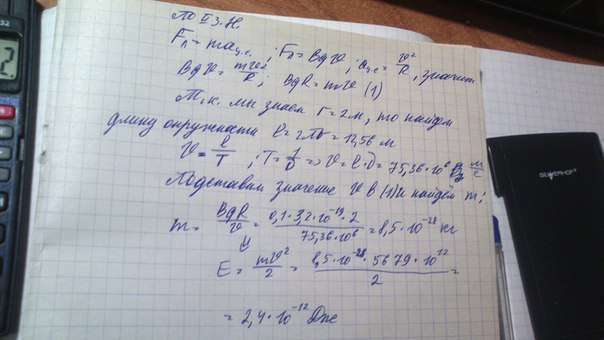 По II З.Н.
Fл = maц.с. ; Fл = Bqv ; aц.с = v²/R , значит
Bqv = mv²/R ; BqR = mv (1)
Т.к. мы знаем r = 2м, то найдем
длину окружности l = 2πr = 12,56 м
v = l/T ; T = 1/ν => v = l·ν = 75,36·10⁶ м/с
Подставим значение v в (1) и найдём m;
m = BqR/v = 0,1·3,2·10⁻¹⁹·2/75,36·10⁶ = 8,5·10⁻²⁸ кг
E = mv²/2 = 8,5·10⁻²⁸·5679·10¹²/2 =
= 2,4·10⁻¹² Дж